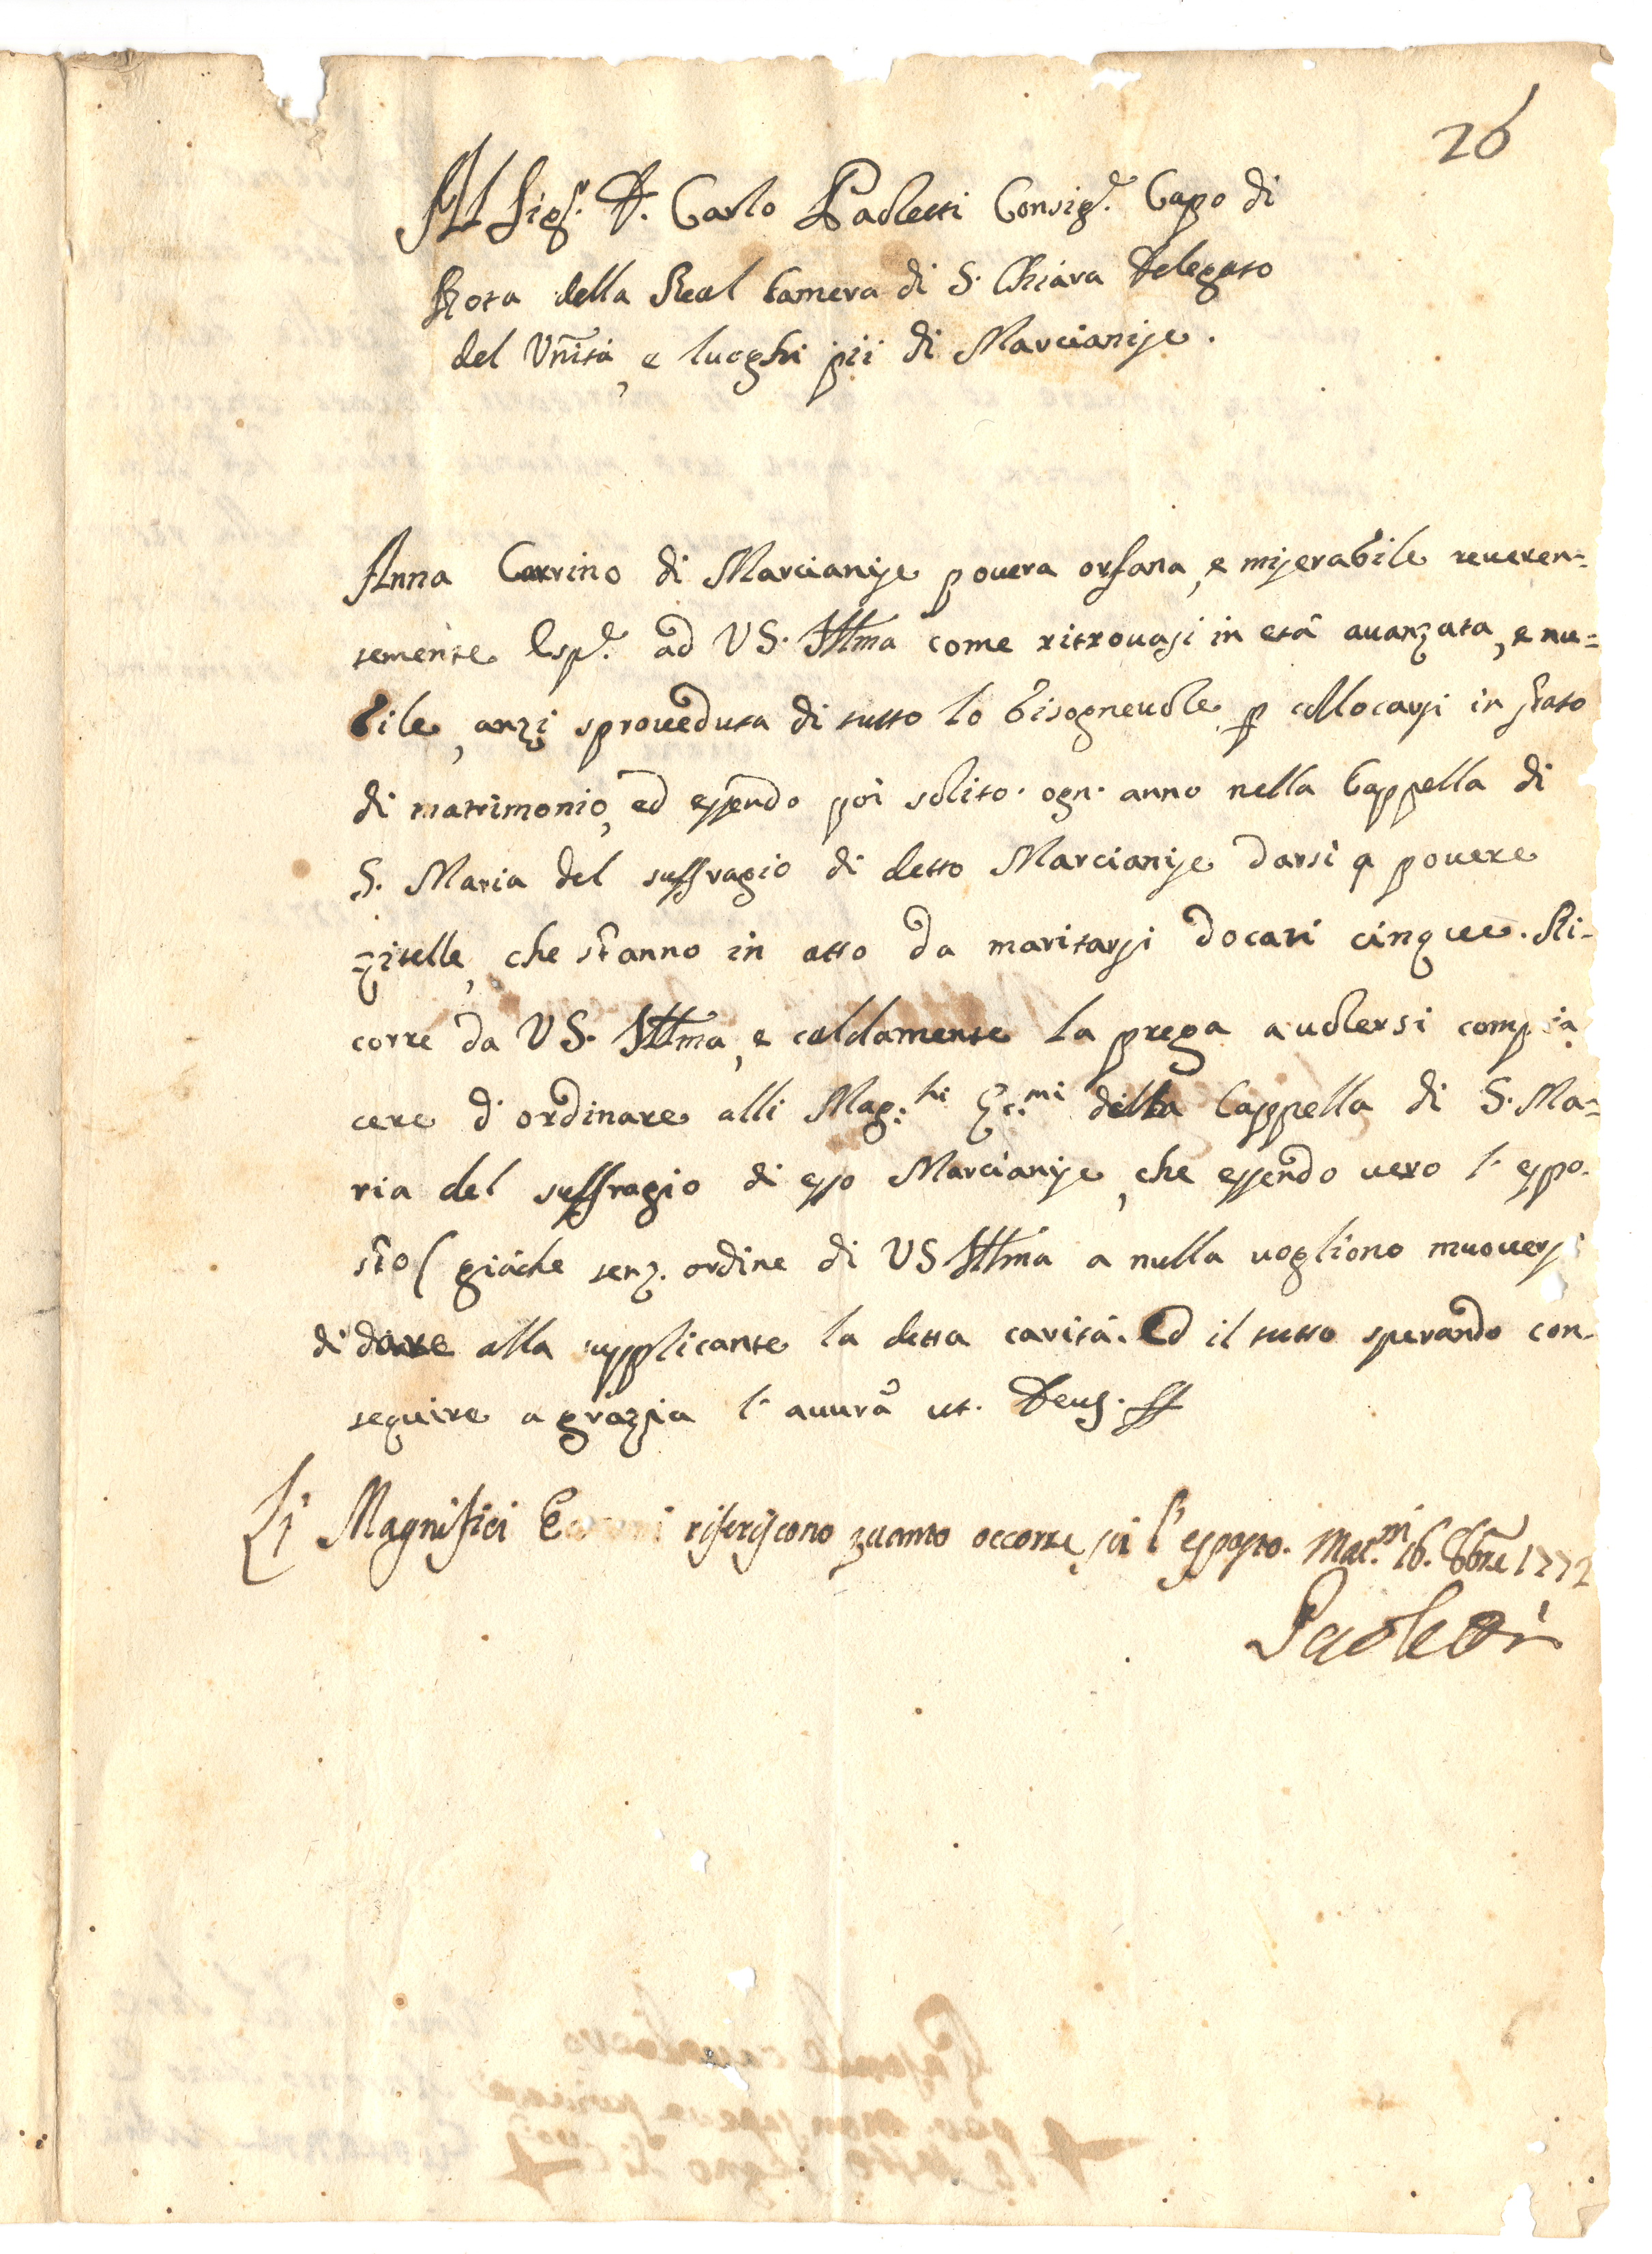 26
Al Sig.r D. Carlo Paoletti Consig.re Capo di
Rota della Real Camera di S. Chiara Delegato
del Un̄ità, e luoghi pii di Marcianise.
Anna Corrino di Marcianise povera orfana, e miserabile reveren=
temente Esp.e ad VS. Ill̄ma come ritrovasi in età avanzata, e nu=
bile, anzi sproveduta di tutto lo bisognevole p collocarsi in stato
di matrimonio, ed essendo poi solito ogn' anno nella Cappella di
S. Maria del suffragio di detto Marcianise darsi a povere
zitelle, che stanno in atto da maritarsi docati cinque. Ri-
corre da VS. Ill̄ma, e caldamente la prega a volersi compia
cere d'ordinare alli Mag.ci Ec.mi della Cappella di S. Ma=
ria del suffragio di esso Marcianise, che essendo vero l'espo.
sto (giàche senz. ordine di VS Ill̄ma a nulla vogliono muoversi
di dare alla supplicante la detta carità. Ed il tutto sperando con
seguire a grazia l'avurà ut. Deus.
Li Magnifici riferiscono quanto occorre, sù l'esposto. 16. 8bre 1772
Paoletti